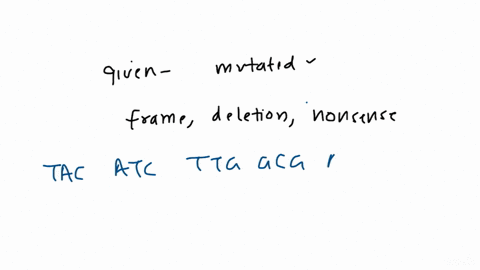 given- mutated-
frame, deletion, nonsense
TAC ATC TTG GCG